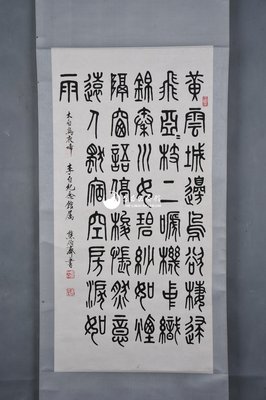 黃雲城邊烏欲棲歸
飛亞=枝上嗁機中織
錦秦川女碧紗如煙
隔窗語停梭悵然意
遠人獨宿空房淚如
雨
太白烏夜啼 李白紀念館屬 齋書